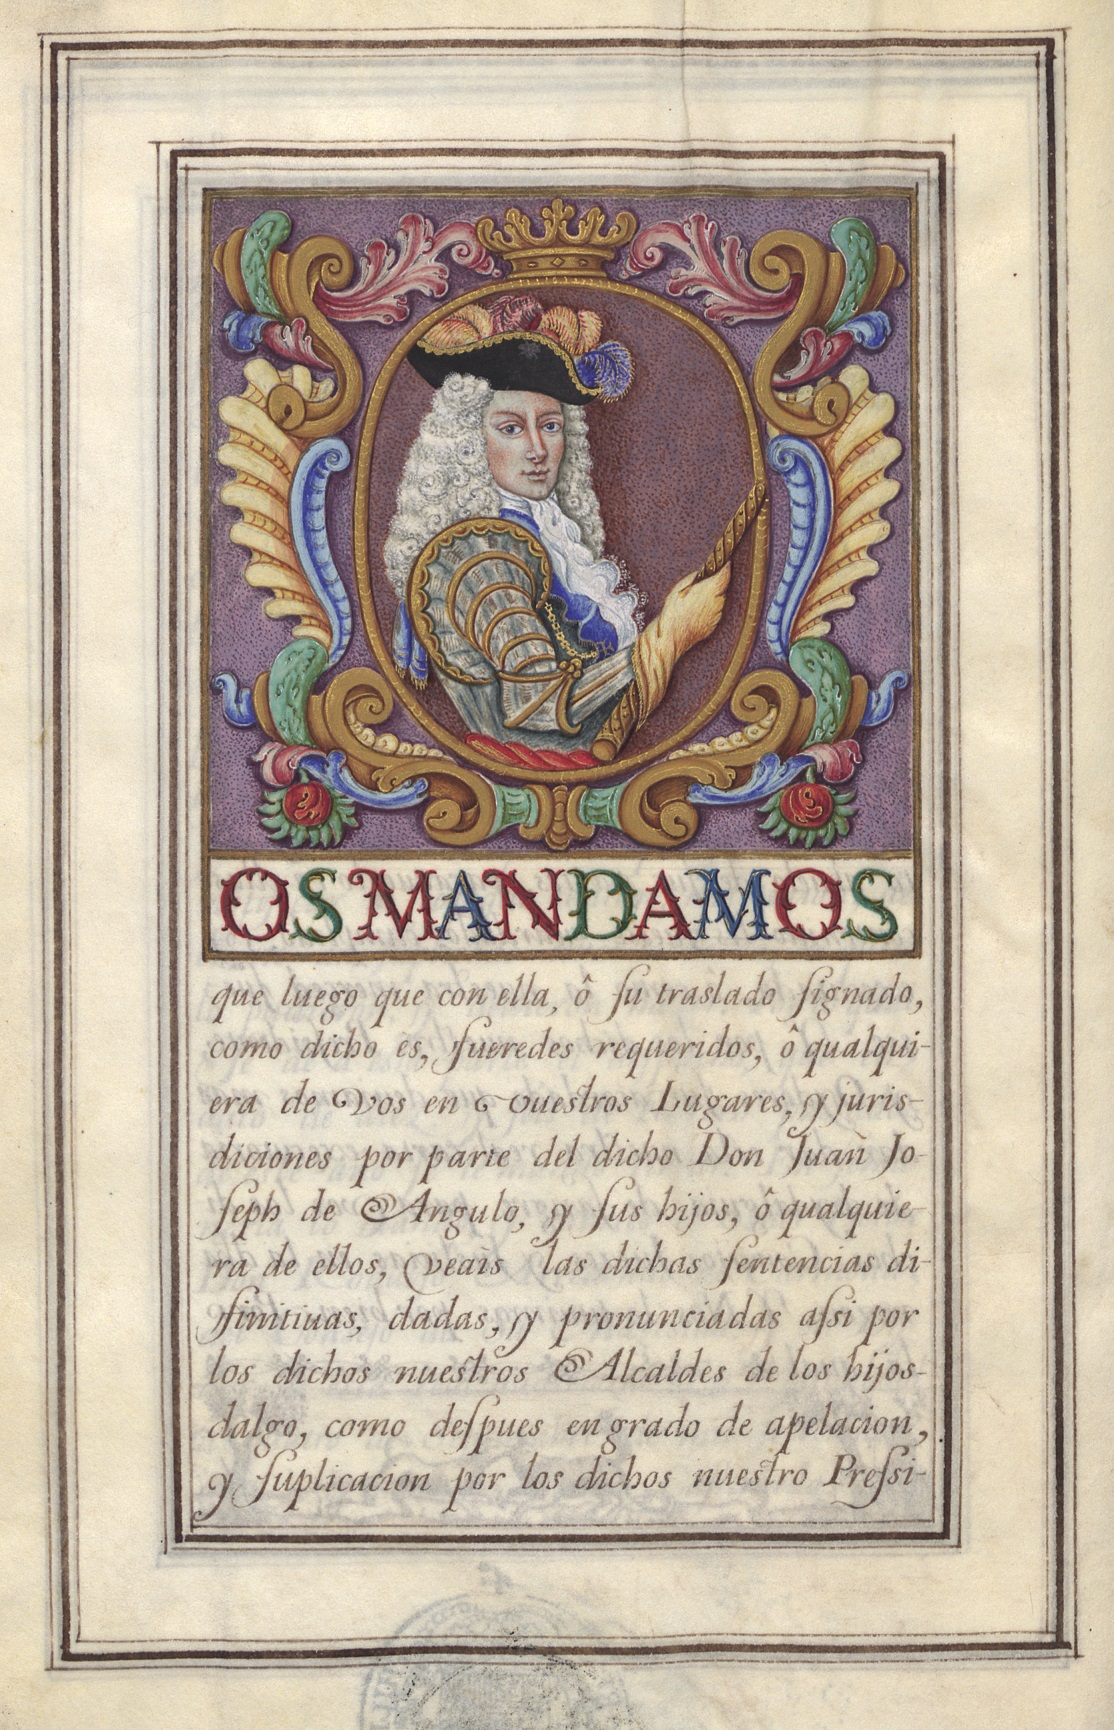 OS MANDAMOS
que luego que con ella, ô ſu traslado ſignado,
como dicho es, fueredes requeridos, ô qualqui-
era de Vos en vuestros Lugares, y juris-
diciones por parte del dicho Don Juan Jo-
ſeph de Angulo, y ſus hijos, ô qualquie-
ra de ellos, veais las dichas ſentencias di-
finitiuas, dadas, y pronunciadas aſsi por
los dichos nuestros Alcaldes de los hijos-
dalgo, como deſpues en grado de apelacion,
y ſuplicacion por los dichos nuestro Preſsi-